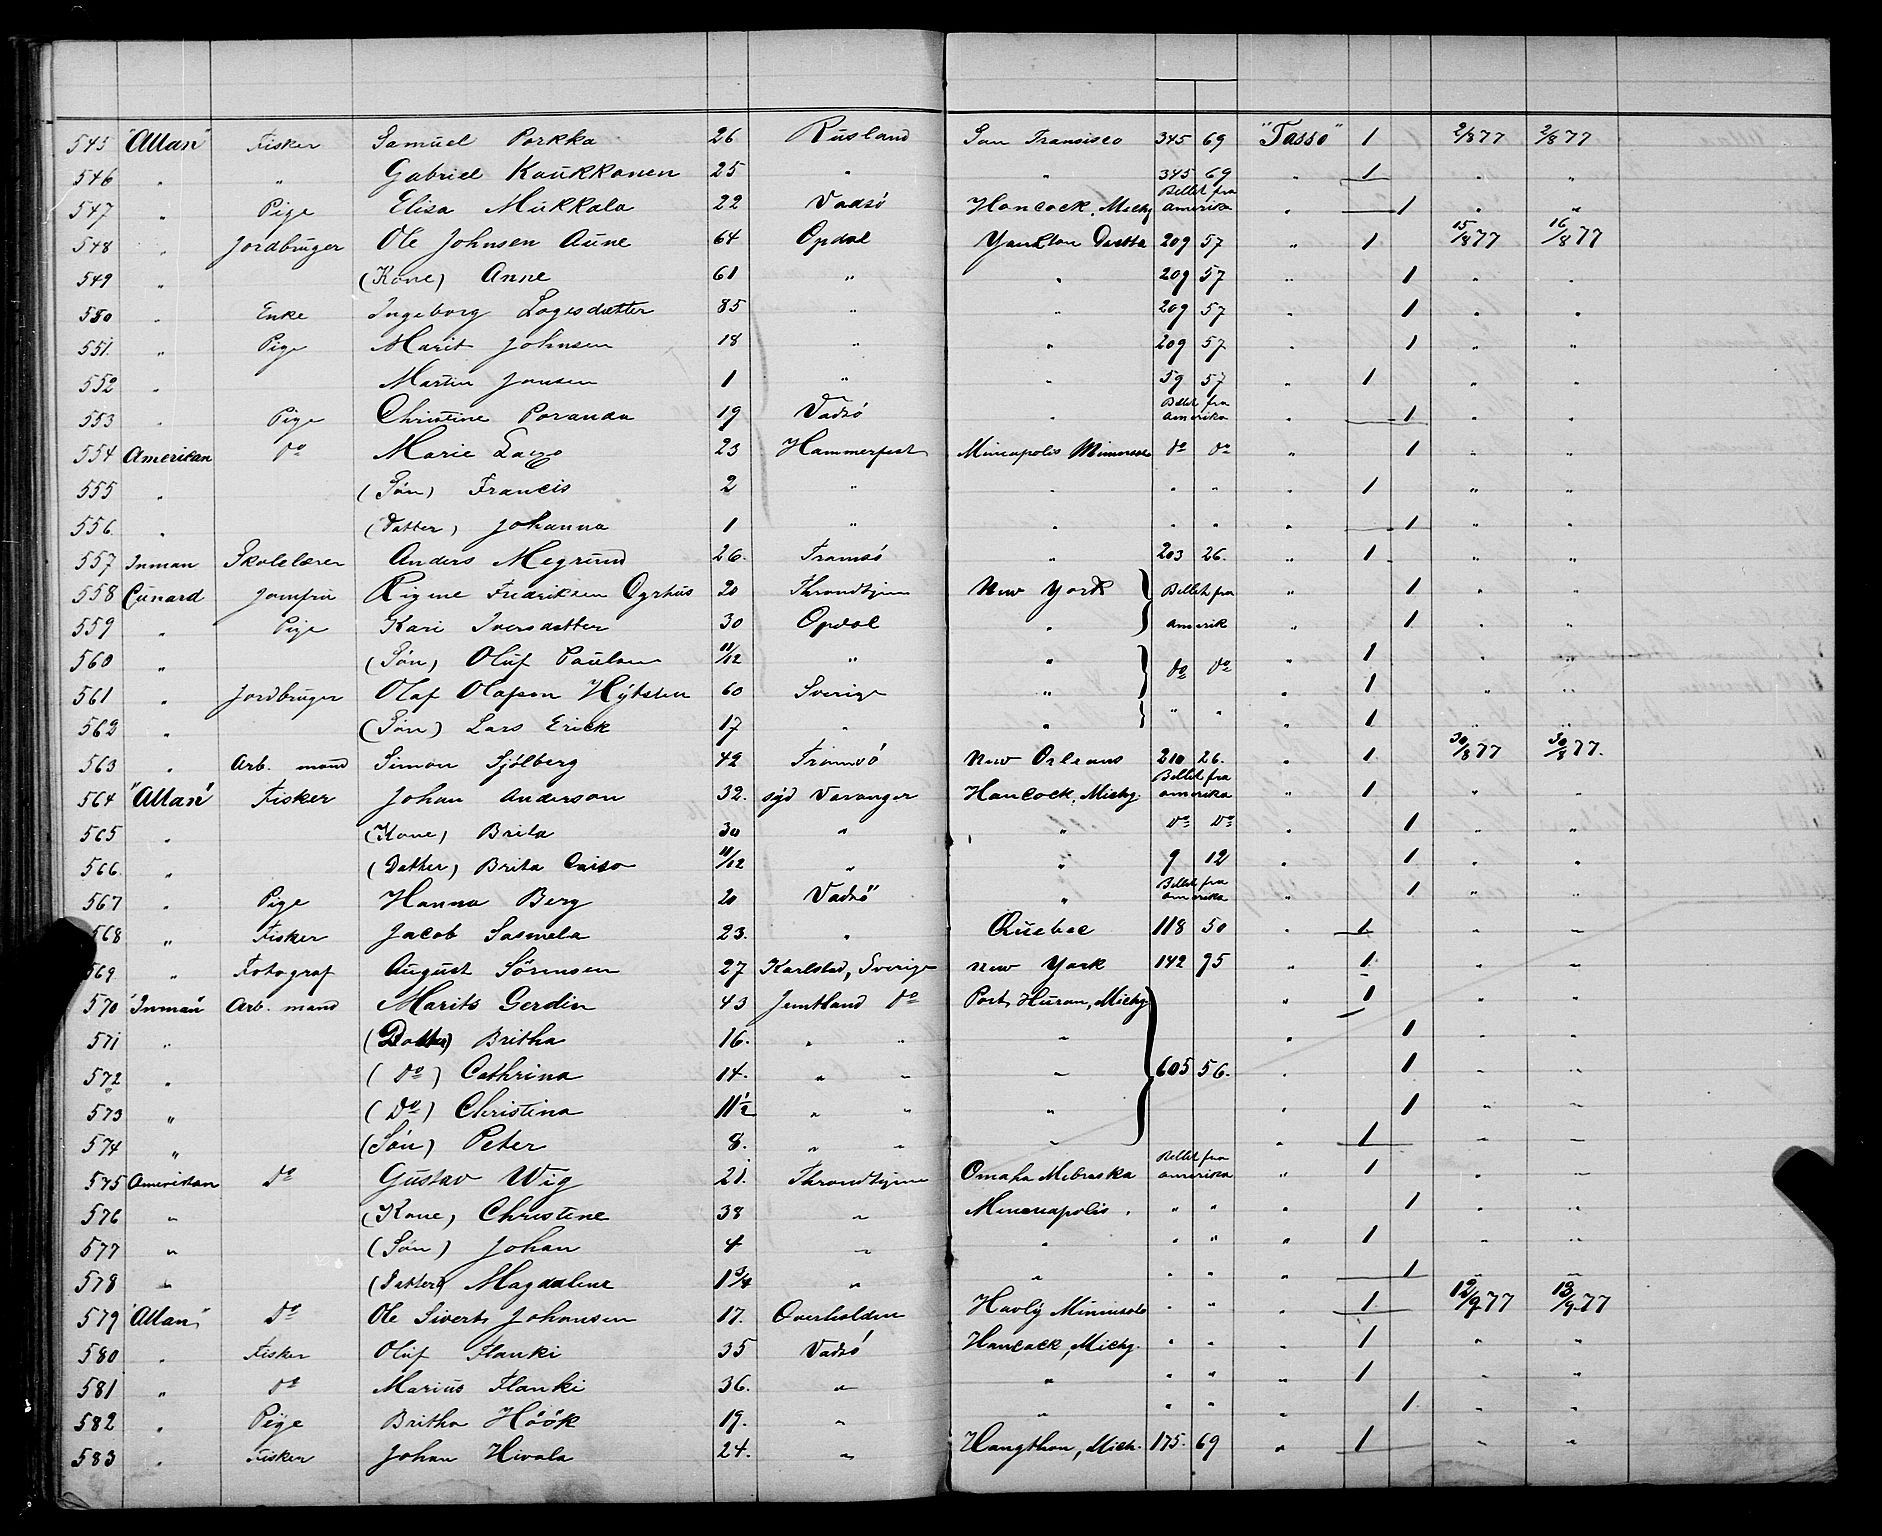 545 "Allan" Fisker Samuel Porkka 26 Rusland San Fransisco 345 69 "Tasso" 1 2/8 77 2/8 77
546 " " Gabriel Kaukkanen 25 " " 345 69 " 1 " "
547 " Pige Elisa Mukkala 22 Vadsö Hancock, Michg Billet fra amerika " 1 " "
548 " Jordbruger Ole Johnsen Aune 64 Opdal Yankton 209 57 " 1 15/8 77 16/8 77
549 " (Kone) Anne 61 " " 209 57 " 1 " "
550 " Enke Ingeborg 85 " " 209 57 " 1 " "
551. " Pige Marit Johnsen 18 " " 209 57 " 1 " "
552 " Martin Jonsen 1 " " 59 57 " 1 " "
553 " Pige Christine Poranda 19 Vadsö " Billet fra amerika " 1 " "
554 Amerikan do Marie 23 Hammerfest Mineapolis do do " 1 " "
555 " (Sön) Francis 2 " " " " " 1 " "
556. " (Datter) Johanna 1 " " " " " 1 " "
557 Inman Skolelærer Anders Megrund 26. Tromsö " 203 26. " 1 " "
558 Cunard Jomfru Fredriksen 20 Throndhjem New York Billet fra " 1 " "
559 " Pige Kari Iversdatter 30 Opdal " amerik " 1 " "
560 " (Sön) Oluf Paulsen 11/12 " " do do " 1 " "
561 " Jordbruger Olaf Olafson 60 Sverige " " 1 " "
562 " (Sön) Lars Erick 17 " " " " " 1 " "
563 " Arb. mand Simon Sjölberg 42 Tromsö New Orleans 210 26. " 1. 30/8 77 30/8 77.
564 "Allan" Fisker Johan Anderson 32. syd Varanger Hancock, Michg Billet fra amerika " 1 " "
565 " (Kone) Brita 30 " " do do " 1 " "
566. " (Datter) Brita 11/12 " " 9 12 " 1 " "
567 " Pige Hanna Berg 20 Vadsö " Billet fra amerika " 1 " "
568 " Fisker Jacob Sasmela 23. " Quebec 118 50 " 1 " "
569. " Fotograf August Sörensen 27 Karlstad, Sverige New York 142 95 " 1. " "
570 "Inman" Arb. mand Marits Gerdin 43 Jemtland do Port Huron, Michg " 1 " "
571 " (Datter) Britha 16. " " " " 1 " "
572 " (do) Cathrina 14. " " " 605 56. " 1 " "
573 " (Do) Christina 11 1/2 " " " " 1 " "
574 " (Sön) Peter 8. " " " " 1 " "
575 Amerikan do Gustav Wig 21. Throndhjem Omaha Nebraska Billet fra amerika " 1 " "
576 " (Kone) Christine 38 " Minenapolis. " " " 1 " "
577 " (Sön) Johan 4 " " " " " 1 " "
578 " (Datter) Magdalene 1 3/4 " " " " " 1 " "
579 "Allan" do Ole Siverts Johansen 17. Overhalden " " " 1. 12/9 77 13/9 77
580 " Fisker Oluf Flanki 35 Vadsö Hancock, Michg. " " " 1 " "
581 " do Marius Flanki 36. " " " " " 1 " "
582 " Pige Britha Höök 19. " " " " " 1. " "
583 " Fisker Johan Hivala 24. " Hangthon, Mich. 175. 69 " 1 " "